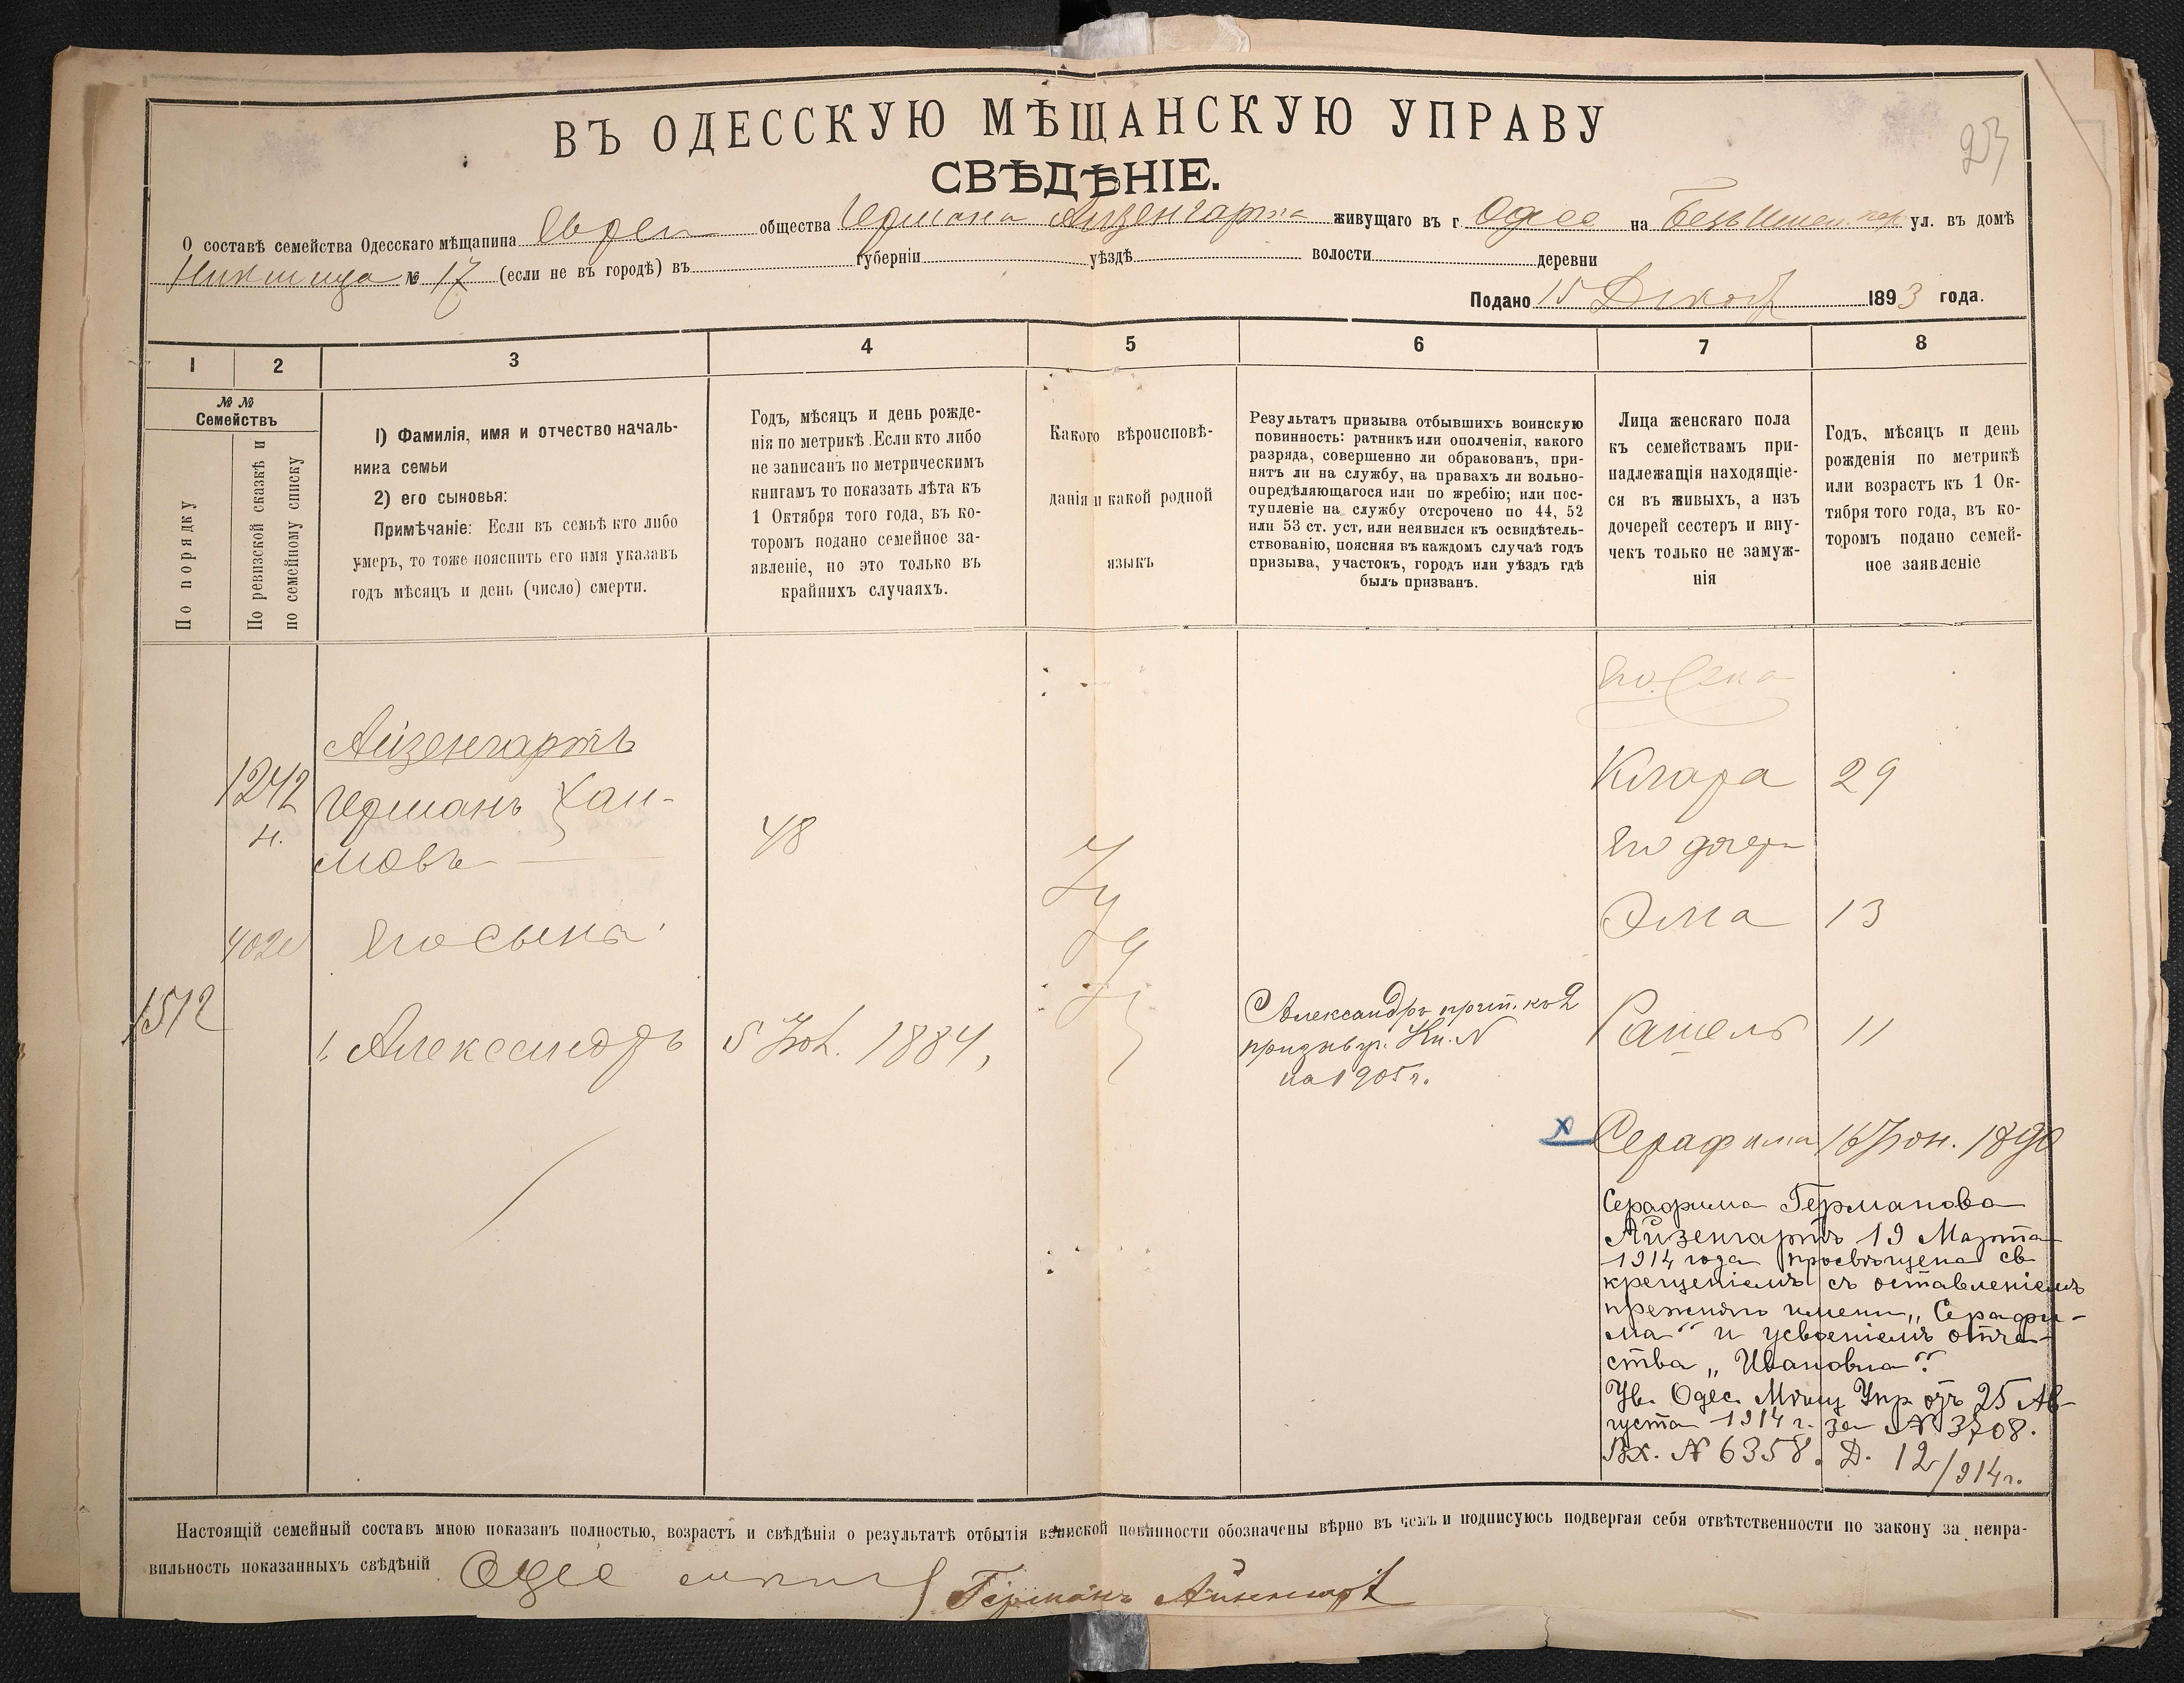 23
ВЪ ОДЕССКУЮ МѢЩАНСКУЮ УПРАВУ
СВѢДѢНІЕ.
О составѣ семейства Одесскаго мѣщанина Еврея общества Германа Айзенгарта живущаго въ г. Одес на ул. въ домѣ
№ 17 (если не въ городѣ) въ губерніи уѣздѣ волости деревни
Подано 15 Декаб 1893 года.
1 2 3 4 5 6 7 8
№ №
Семействъ
По порядку
По ревизской сказкѣ и
по семейному списку
1) Фамилія, имя и отчество началь-
ника семьи
2) его сыновья:
Примѣчаніе: Если въ семьѣ кто либо
умеръ, то тоже пояснить его имя указавъ
годъ мѣсяцъ и день (число) смерти.
Годъ, мѣсяцъ и день рожде-
нія по метрикѣ. Если кто либо
не записанъ по метрическимъ
книгамъ то показать лѣта къ
1 Октября того года, въ ко-
торомъ подано семейное за-
явленіе, но это только въ
крайнихъ случаяхъ.
Какого вѣроисповѣ-
данія и какой родной
языкъ
Результатъ призыва отбывшихъ воинскую
повинность: ратникъ или ополченія, какого
разряда, совершенно ли обракованъ, при-
нятъ ли на службу, на правахъ ли вольно-
опредѣляющагося или по жребію; или пос-
тупленіе на службу отсрочено по 44, 52
или 53 ст. уст. или неявился къ освидѣтель-
ствованію, поясняя въ каждомъ случаѣ годъ
призыва, участокъ, городъ или уѣздъ гдѣ
былъ призванъ.
Лица женскаго пола
къ семействамъ при-
надлежащія находящіе-
ся въ живыхъ, а изъ
дочерей сестеръ и вну-
чекъ только не замуж-
нія
Годъ, мѣсяцъ и день
рожденія по метрикѣ
или возрастъ къ 1 Ок-
тября того года, въ ко-
торомъ подано семей-
ное заявленіе
Его жена
Айзенгартъ
1242 Германъ Хаи-
н. мовъ 48
Клара 29
Его дочери
Іу
Эма 13
Его сына
1512
1. Александръ 5 1884,
Александръ прип. къ 2
призыв. уч. Кн. N
на 1905 г.
Рашель 11
х Серафима 16 Іюн. 1890
Серафима Германова
Айзенгартъ 19 Марта
1914 года просвѣщена св
крещеніемъ съ оставленіемъ
прежняго имени „Серафи-
ма" и усвоеніемъ отче-
ства „Ивановна".
Ув. Одес. Мѣщ Упр отъ 25 Ав-
густа 1914 г. за № 3708.
Вх. № 6358. Д. 12/914 г.
Настоящій семейный составъ мною показанъ полностью, возрастъ и свѣдѣнія о результатѣ отбытія воинской повинности обозначены вѣрно въ чемъ и подписуюсь подвергая себя отвѣтственности по закону за непра-
вильность показанныхъ свѣдѣній Одес
Германъ Айзенгарт